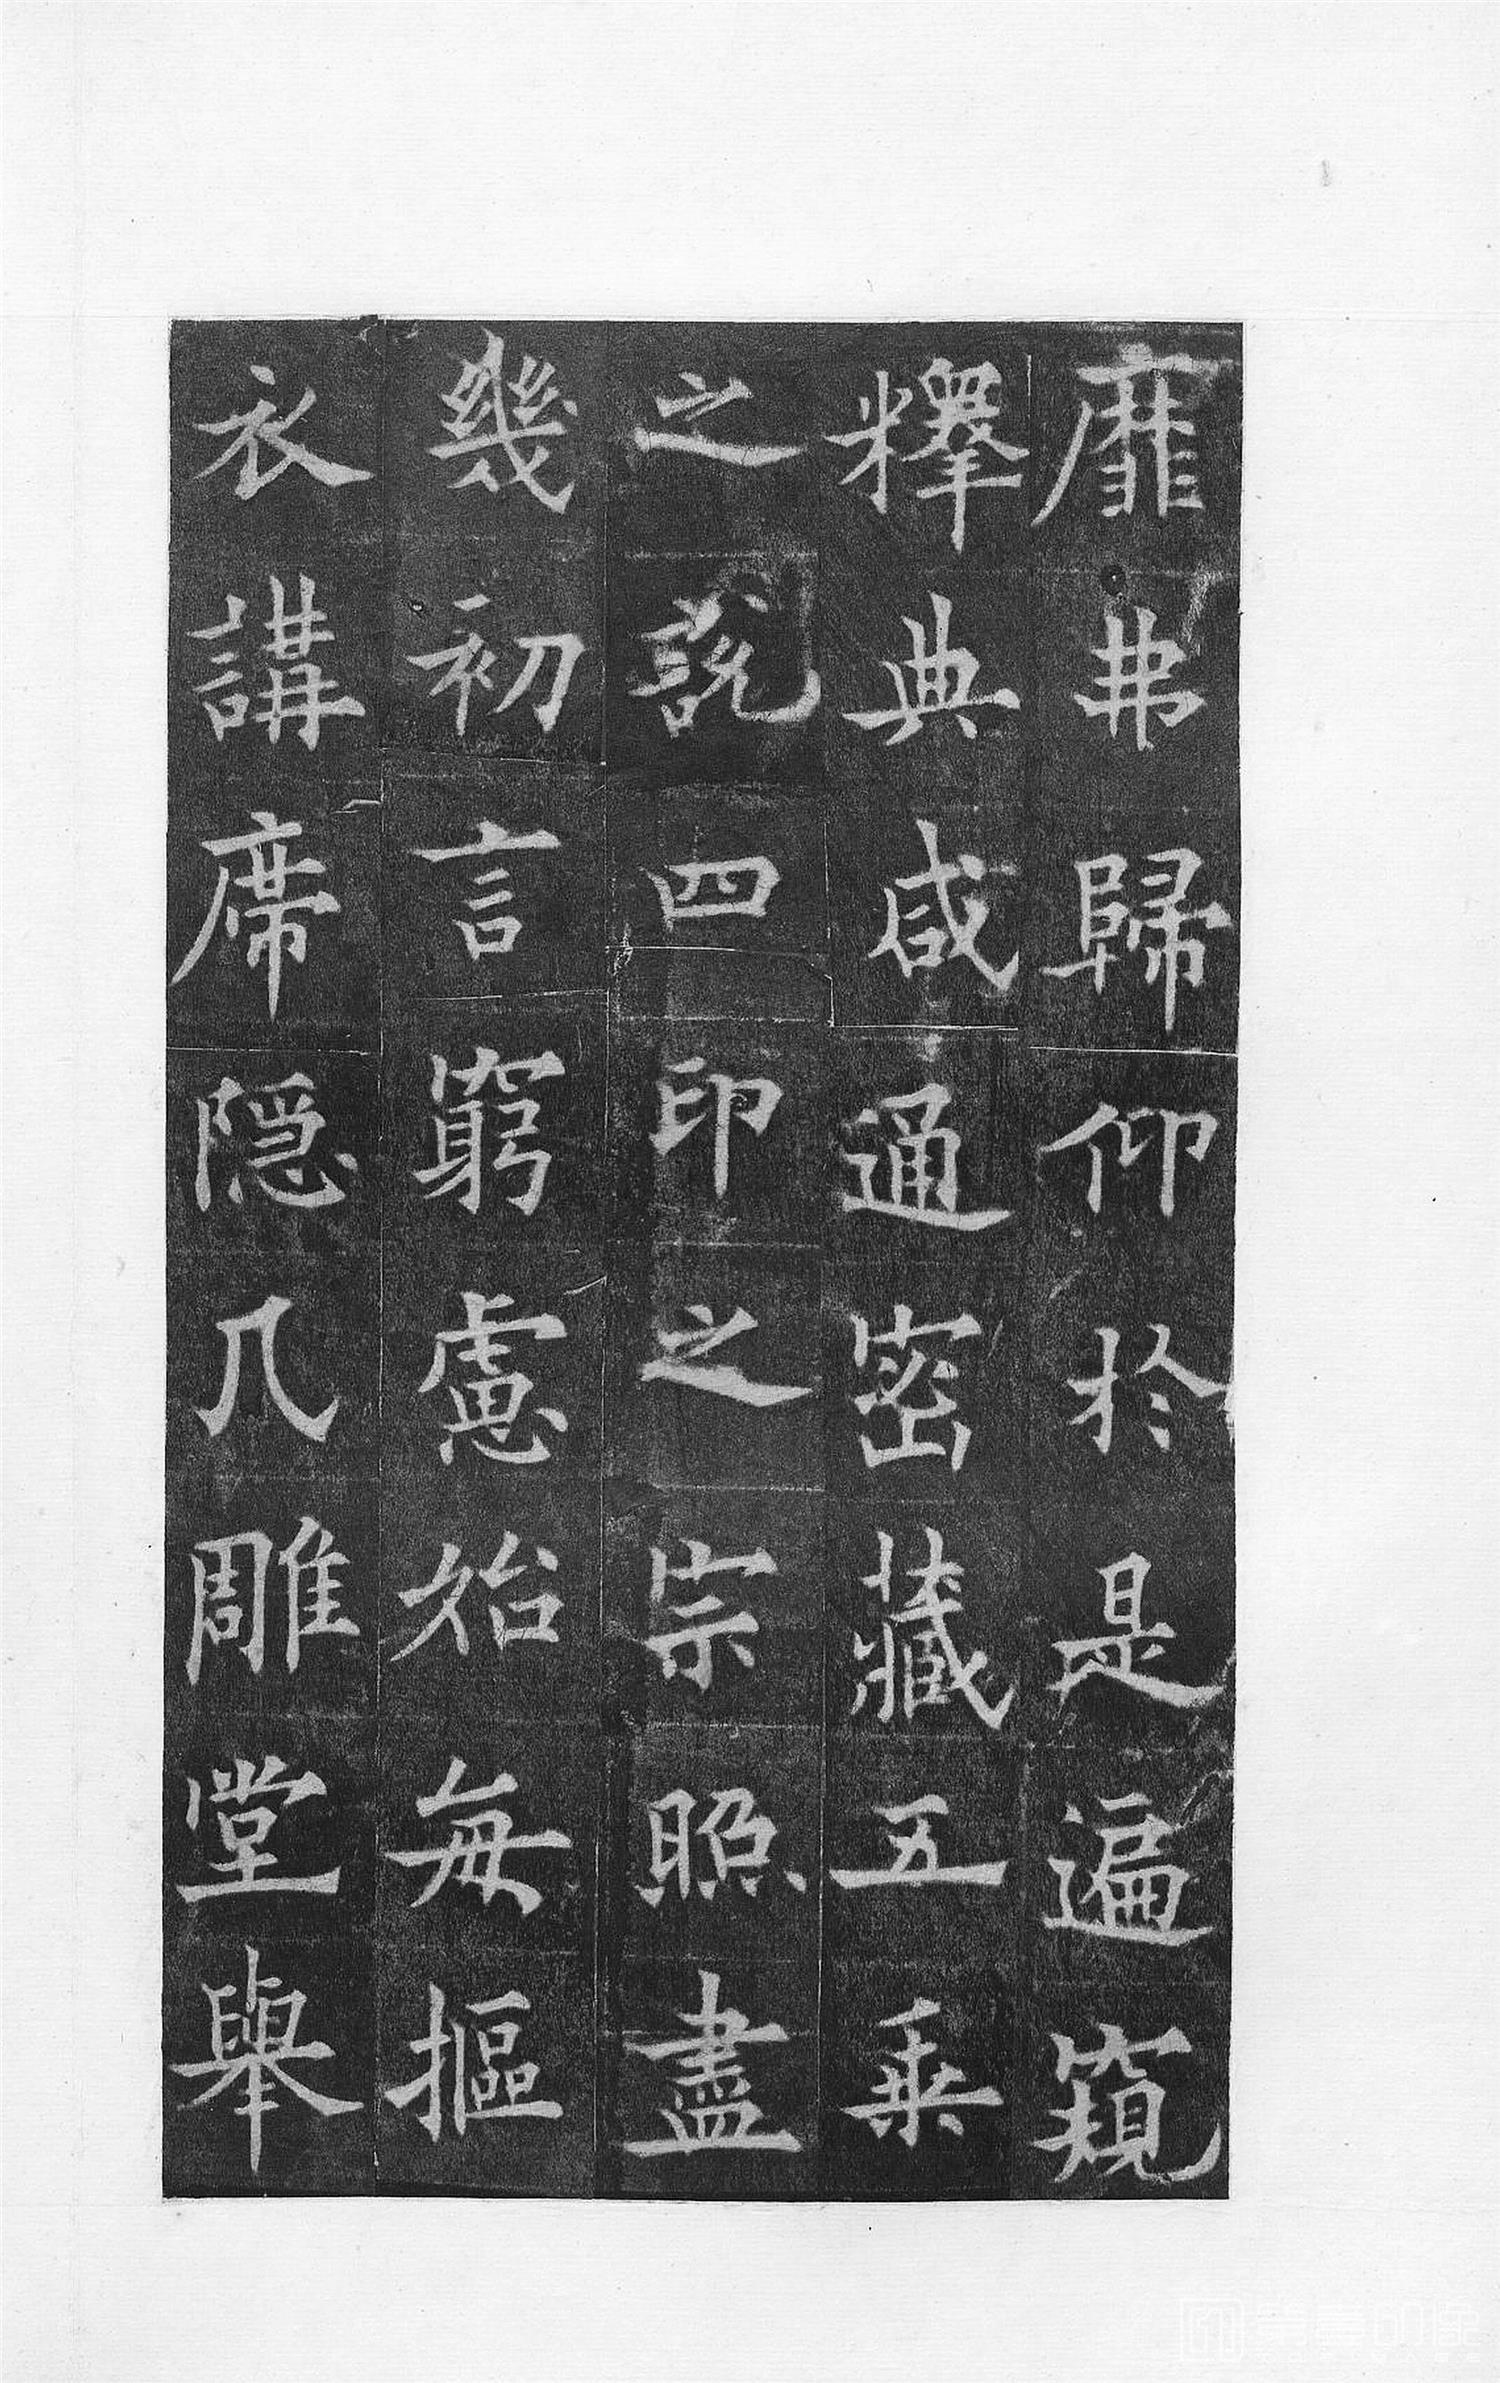 靡弗歸仰於是遍窺
釋典咸通密藏五乘
之說四印之宗照盡
幾初言窮慮始每摳
衣講席隱几雕堂舉